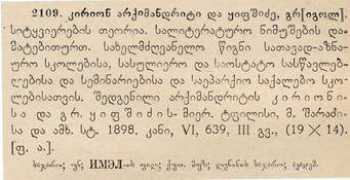 2109. კირიონ არქიმანდრიტი და ყიფშიძე, გრ[იგოლ].
სიტყვიერების თეორია. სალიტერატურო ნიმუშების და-
მატებითურთ. სახელმძღვანელო წიგნი სათავად-აზნა-
ურო სკოლებისა, სასულიერო და საოსტატო სასწავლებ-
ლებისა და სემინარიებისა და საეპარქიო საქალებო სკო-
ლებისათვის. შედგენილი არქიმანდრიტის კირიონი-
სა და გრ. ყიფშიძის-მიერ. ტფილისი, მ. შარაძი-
სა და ამხ. სტ. 1898. კანი, VI, 639, III გვ., (19 × 14).
[ფ. ა.].
საჯაროც ფნ ИМЭЛ-ის ფილ; ქუთ. მუზ; ლენინის საჯაროც